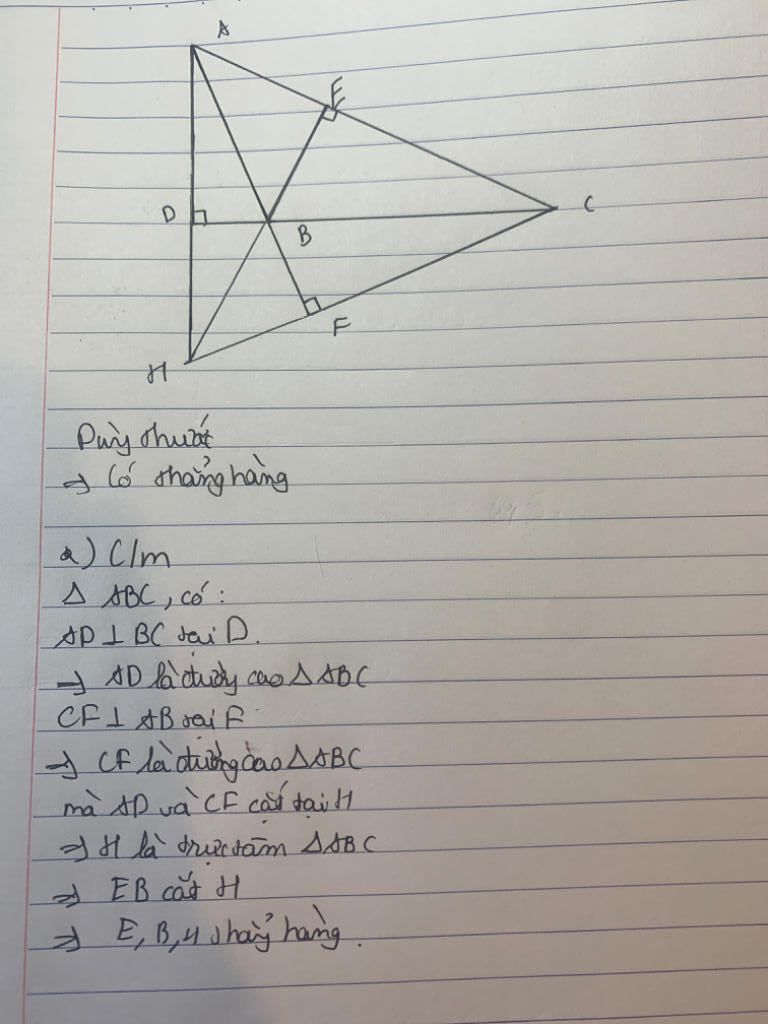 A
E
D
B
C
F
H
⇒ Có thẳng hàng
a) C/m
Δ ABC, có:
AD ⊥ BC tại D.
⇒ AD là đường cao Δ ABC
CF ⊥ AB tại F
⇒ CF là đường cao ΔABC
mà AD và CF cắt tại H
⇒ H là trực tâm ΔABC
⇒ EB cắt H
⇒ E, B, H thẳng hàng.